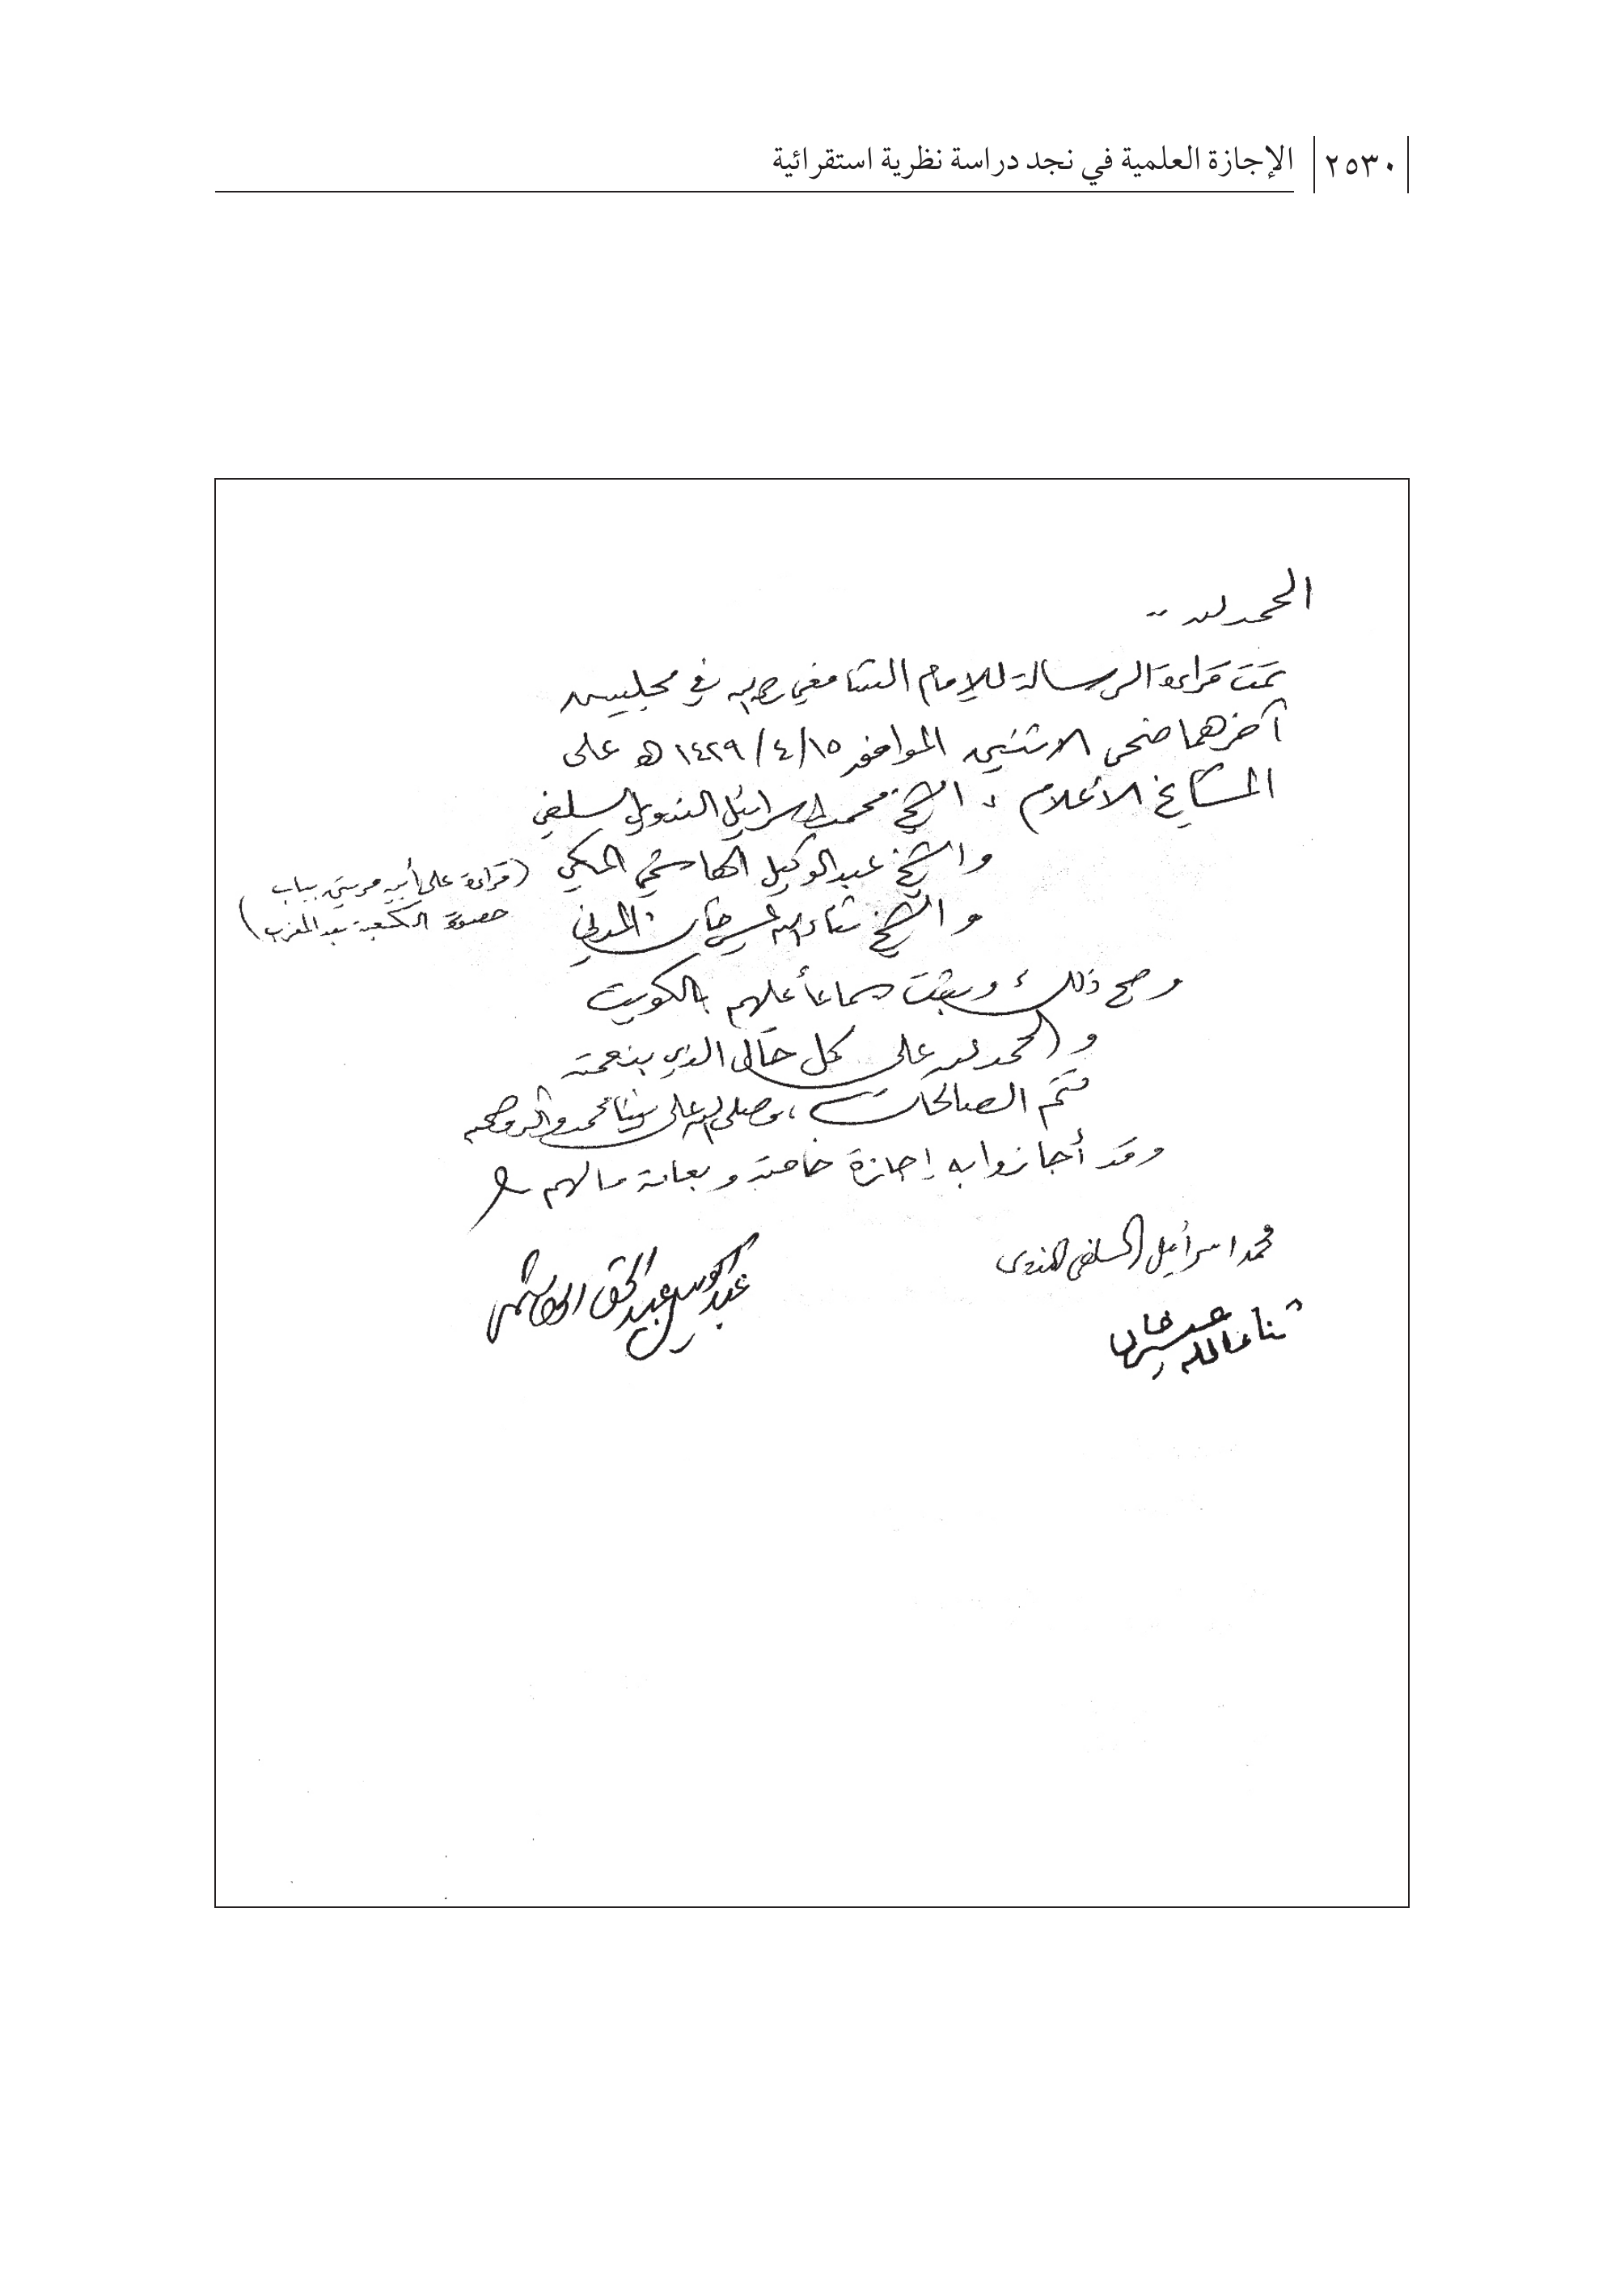 ٢٥٣٠ الإجازة العلمية في نجد دراسة نظرية استقرائية
الحمد لله ..
تمت قراءة الرسالة للإمام الشافعي رحمه الله في مجلسين
آخرهما ضحى الاثنين الموافق ١٥/٤/١٤٢٩ هـ على
المشايخ الأعلام : الشيخ محمد إسرائيل الندوي السلفي
والشيخ عبدالوكيل الهاشمي المكي (قراءة على أبيه مرتين بباب
والشيخ ثناء الله عيسى خان المدني الكعبة بعد المغرب)
وصح ذلك وثبت سماعاً عليهم بالكويت
والحمد لله على كل حال الذي بنعمته
تتم الصالحات ، وصلى الله على نبينا محمد وآله وصحبه
وقد أجازوا به إجازة خاصة وبعامة ما لهم
محمد اسرائيل السلفي الندوى
عبدالوكيل عبدالحق الهاشمي
ثناء الله عيسى خان